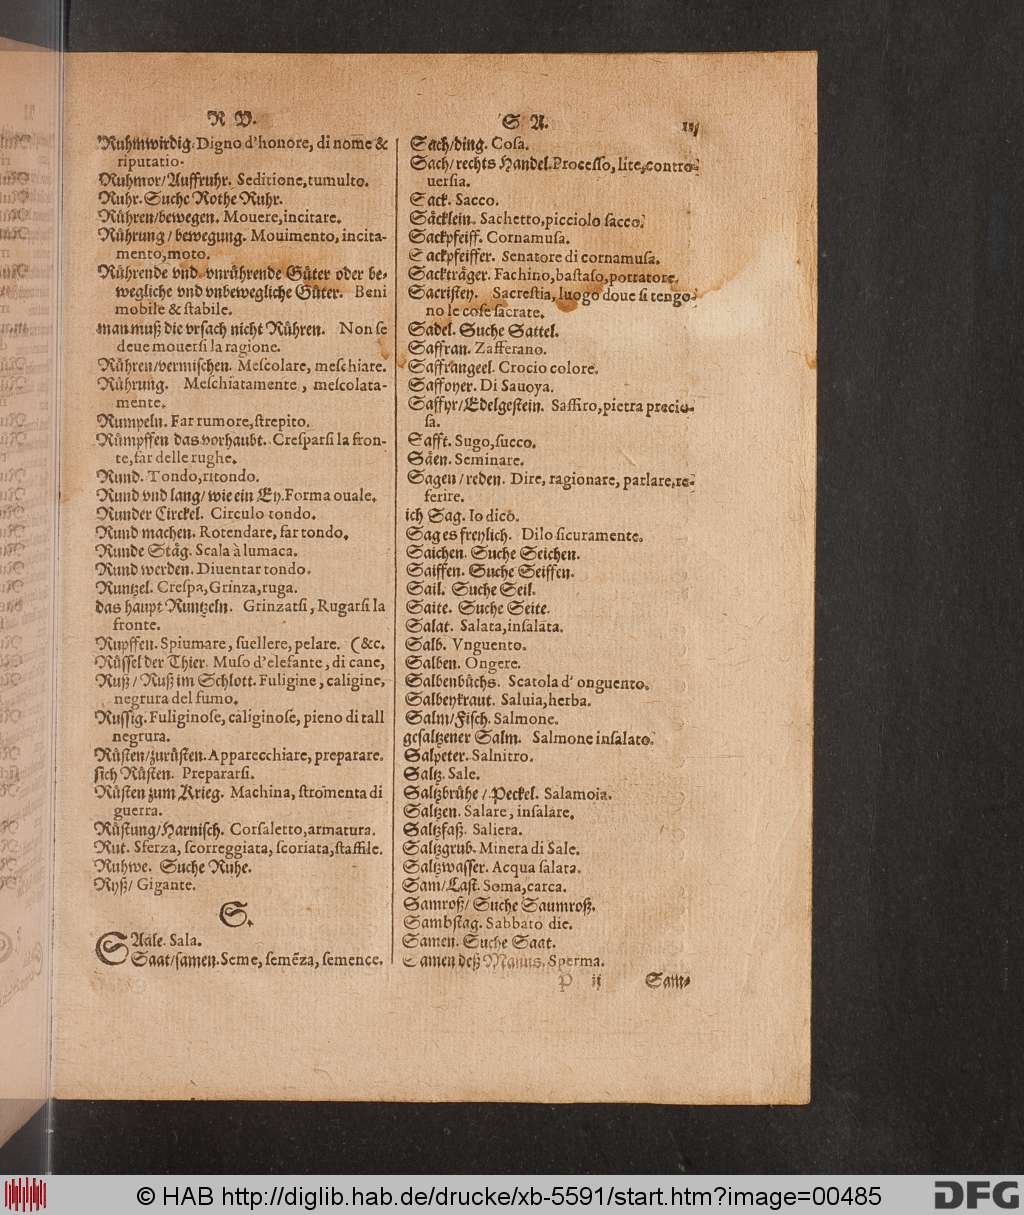 R V.
Ruhmwirdig. Digno d'honore, di nome &
riputatio.
Ruhmor/Auffruhr. Seditione, tumulto.
Ruhr. Suche Rothe Ruhr.
Rühren/bewegen. Mouere, incitare.
Rührung/bewegung. Mouimento, incita-
mento, moto.
Rührende vnd vnrührende Güter oder be-
wegliche vnd vnbewegliche Güter. Beni
mobile & stabile.
man muß die vrsach nicht Rühren. Non se
deue mouersi la ragione.
Rühren/vermischen. Mescolare, meschiare.
Rührung. Meschiatamente, mescolata-
mente.
Rumpeln. Far rumore, strepito.
Rümpffen das vorhaubt. Cresparsi la fron-
te, far delle rughe.
Rund. Tondo, ritondo.
Rund vnd lang/ wie ein Ey. Forma ouale.
Runder Circkel. Circulo tondo.
Rund machen. Rotendare, far tondo.
Runde Stäg. Scala à lumaca.
Rund werden. Diuentar tondo.
Runtzel. Crespa, Grinza, ruga.
das haupt Runtzeln. Grinzatsi, Rugarsi la
fronte.
Rupffen. Spiumare, suellere, pelare. (&c.
Rüssel der Thier. Muso d'elefante, di cane,
Ruß/ Ruß im Schlott. Fuligine, caligine,
negrura del fumo.
Russig. Fuliginose, caliginose, pieno di tall
negrura.
Rüsten/zurüsten. Apparecchiare, preparare.
sich Rüsten. Prepararsi.
Rüsten zum Krieg. Machina, stromenta di
guerra.
Rüstung/Harnisch. Corsaletto, armatura.
Rut. Sferza, scorreggiata, scoriata, staffile.
Ruhwe. Suche Ruhe.
Ryß/ Gigante.
S.
SAäle. Sala.
Saat/samen. Seme, semẽza, semence.
S A.
Sach/ding. Cosa.
Sach/rechts Handel. Processo, lite, contro-
uersia.
Sack. Sacco.
Säcklein. Sachetto, picciolo sacco.
Sackpfeiff. Cornamusa.
Sackpfeiffer. Senatore di cornamusa.
Sackträger. Fachino, bastaso, portatore.
Sacristey. Sacrestia, luogo doue si tengo-
no le cose sacrate.
Sadel. Suche Sattel.
Saffran. Zafferano.
Saffrangeel. Crocio colore.
Saffoyer. Di Sauoya.
Saffyr/Edelgestein. Saffiro, pietra precio-
sa.
Safft. Sugo, succo.
Säen. Seminare.
Sagen/reden. Dire, ragionare, parlare, re-
ferire.
ich Sag. Io dico.
Sag es freylich. Dilo sicuramente.
Saichen. Suche Seichen.
Saiffen. Suche Seiffen.
Sail. Suche Seil.
Saite. Suche Seite.
Salat. Salata, insalata.
Salb. Vnguento.
Salben. Ongere.
Salbenbüchs. Scatola d' onguento.
Salbeykraut. Saluia, herba.
Salm/Fisch. Salmone.
gesaltzener Salm. Salmone insalato.
Salpeter. Salnitro.
Saltz. Sale.
Saltzbrühe/Peckel. Salamoia.
Saltzen. Salare, insalare.
Saltzfaß. Saliera.
Saltzgrub. Minera di Sale.
Saltzwasser. Acqua salata.
Sam/Last. Soma, carca.
Samroß/ Suche Saumroß.
Sambstag. Sabbato die.
Samen. Suche Saat.
Samen deß Manns. Sperma.
P ij Sam-
© HAB http://diglib.hab.de/drucke/xb-5591/start.htm?image=00485
DFG